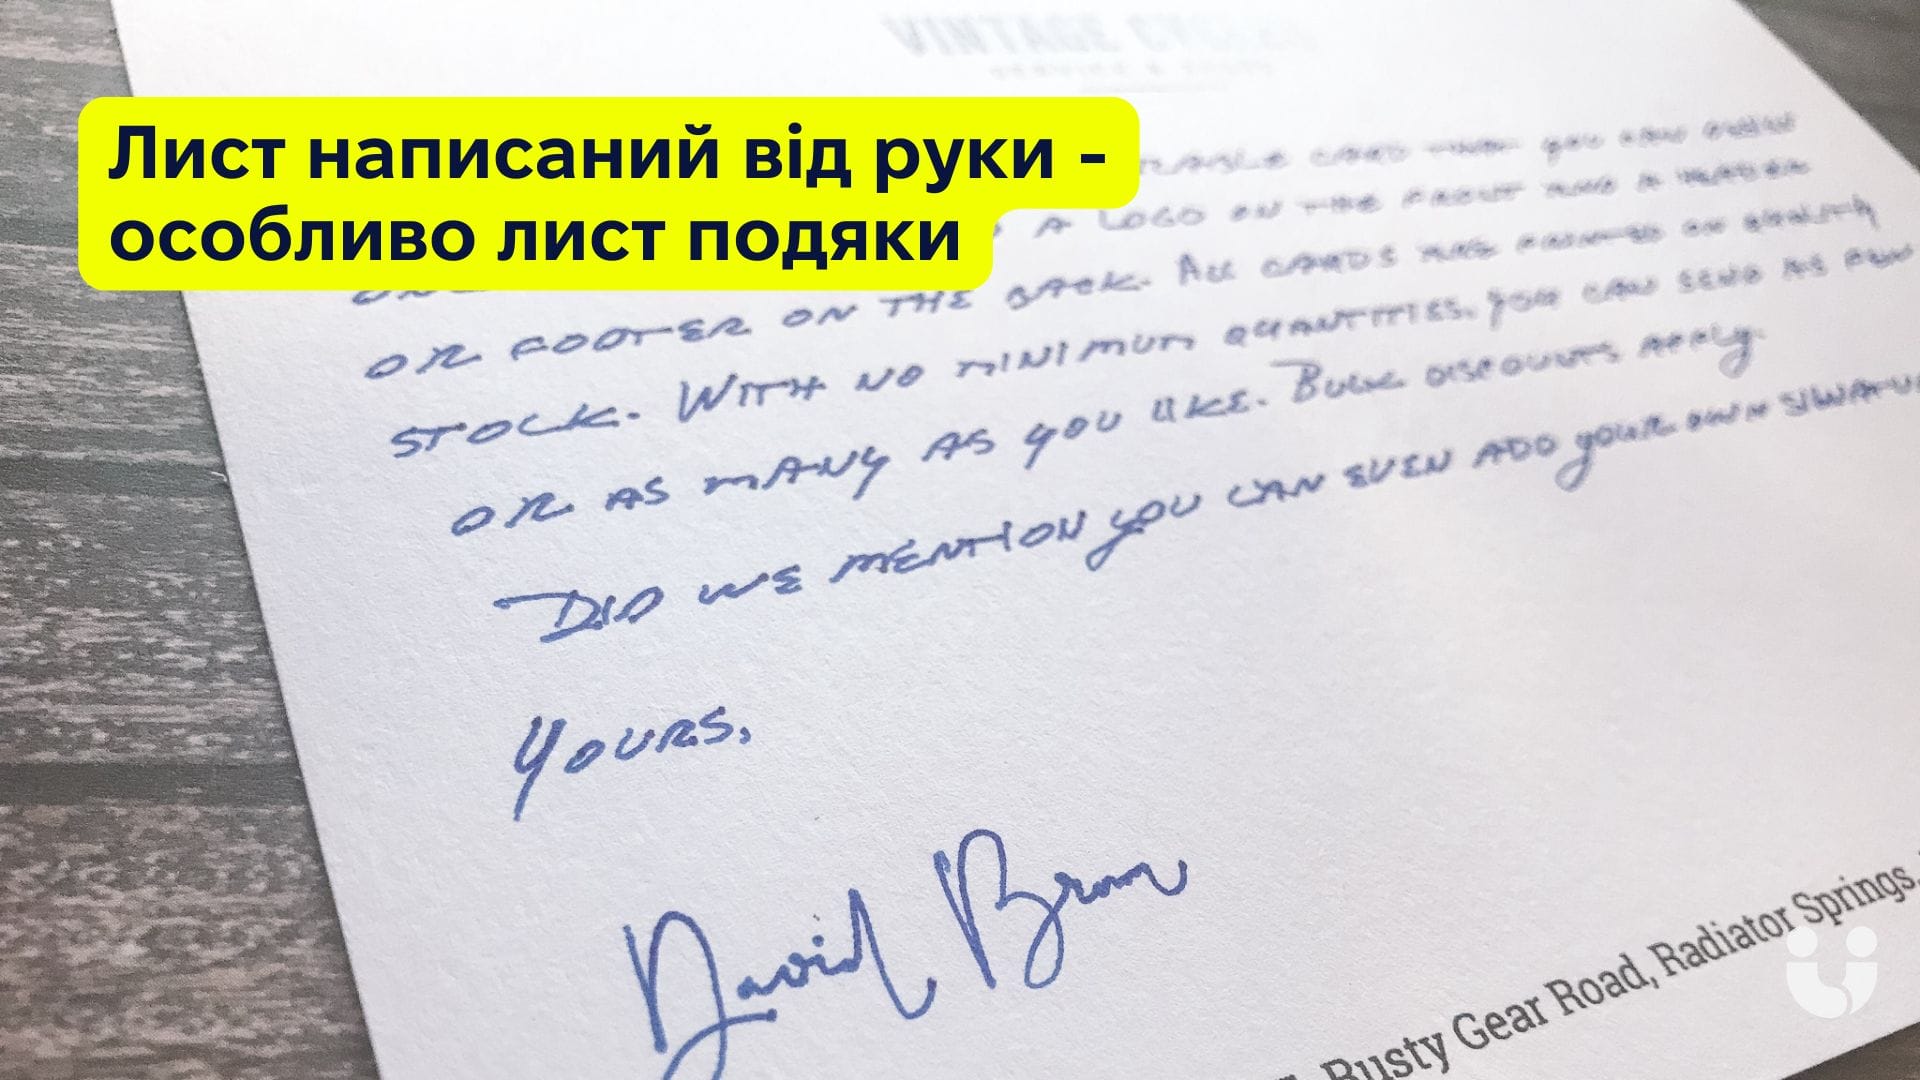 VINTAGE
Лист написаний від руки -
особливо лист подяки
CARD THAT YOU CAN
A LOGO ON THE FRONT AND A HEADER
OR FOOTER ON THE BACK. ALL CARDS ARE PRINTED ON QUALITY
STOCK. WITH NO MINIMUM QUANTITIES. YOU CAN SEND AS FEW
OR AS MANY AS YOU LIKE. BULK DISCOUNTS APPLY.
DID WE MENTION YOU CAN EVEN ADD YOUR OWN
YOURS,
David
Rusty Gear Road, Radiator Springs,